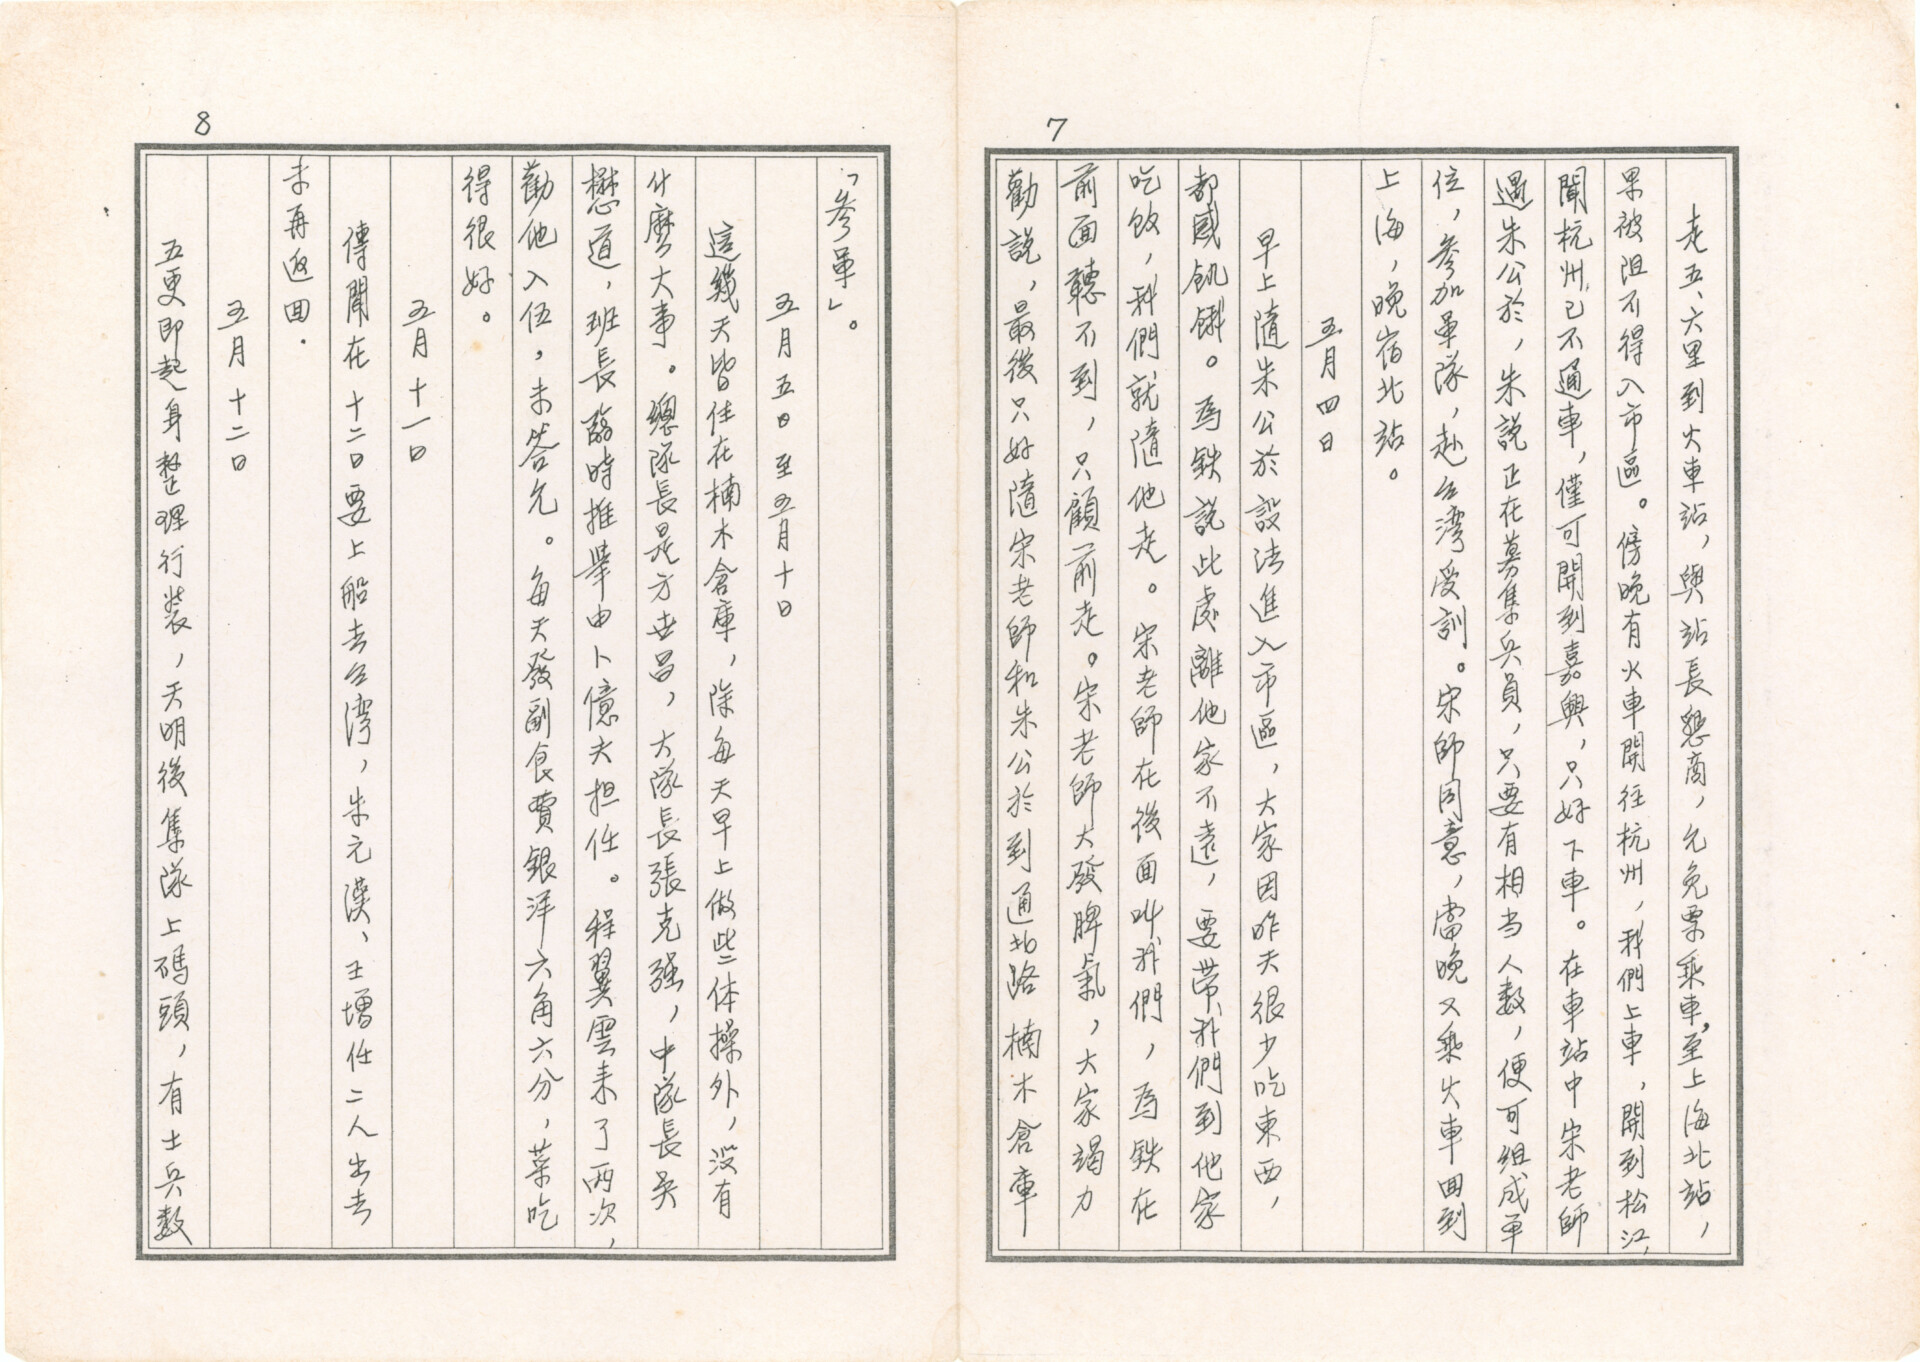 7
走五、六里到火車站，與站長懇商，允免票乘車，至上海北站，
果被阻不得入市區。傍晚有火車開往杭州，我們上車，開到松江，
聞杭州已不通車，僅可開到嘉興，只好下車。在車站中宋老師
遇朱公於，朱說正在募集兵員，只要有相当人数，便可組成單
位，參加軍隊，赴台湾受訓。宋師同意，當晚又乘火車回到
上海，晚宿北站。
五月四日
早上隨朱公於設法進入市區，大家因昨天很少吃東西，
都感飢餓。為鉄說此處離他家不遠，要帶我們到他家
吃飯，我們就隨他走。宋老師在後面叫我們，為鉄在
前面聽不到，只顧前走。宋老師大發脾氣，大家竭力
勸說，最後只好隨宋老師和朱公於到通北路楠木倉庫
8
「參軍」。
五月五日至五月十日
這幾天皆住在楠木倉庫，除每天早上做些体操外，没有
什麼大事。總隊長是方世昌，大隊長張克强，中隊長吴
懋道，班長臨時推舉由卜億夫担任。程翼雲来了两次，
勸他入伍，未答允。每天發副食費銀洋六角六分，菜吃
得很好。
五月十一日
傳聞在十二日要上船去台湾，朱元漢、王增任二人出去
未再返回．
五月十二日
五更即起身整理行装，天明後集隊上碼頭，有士兵数